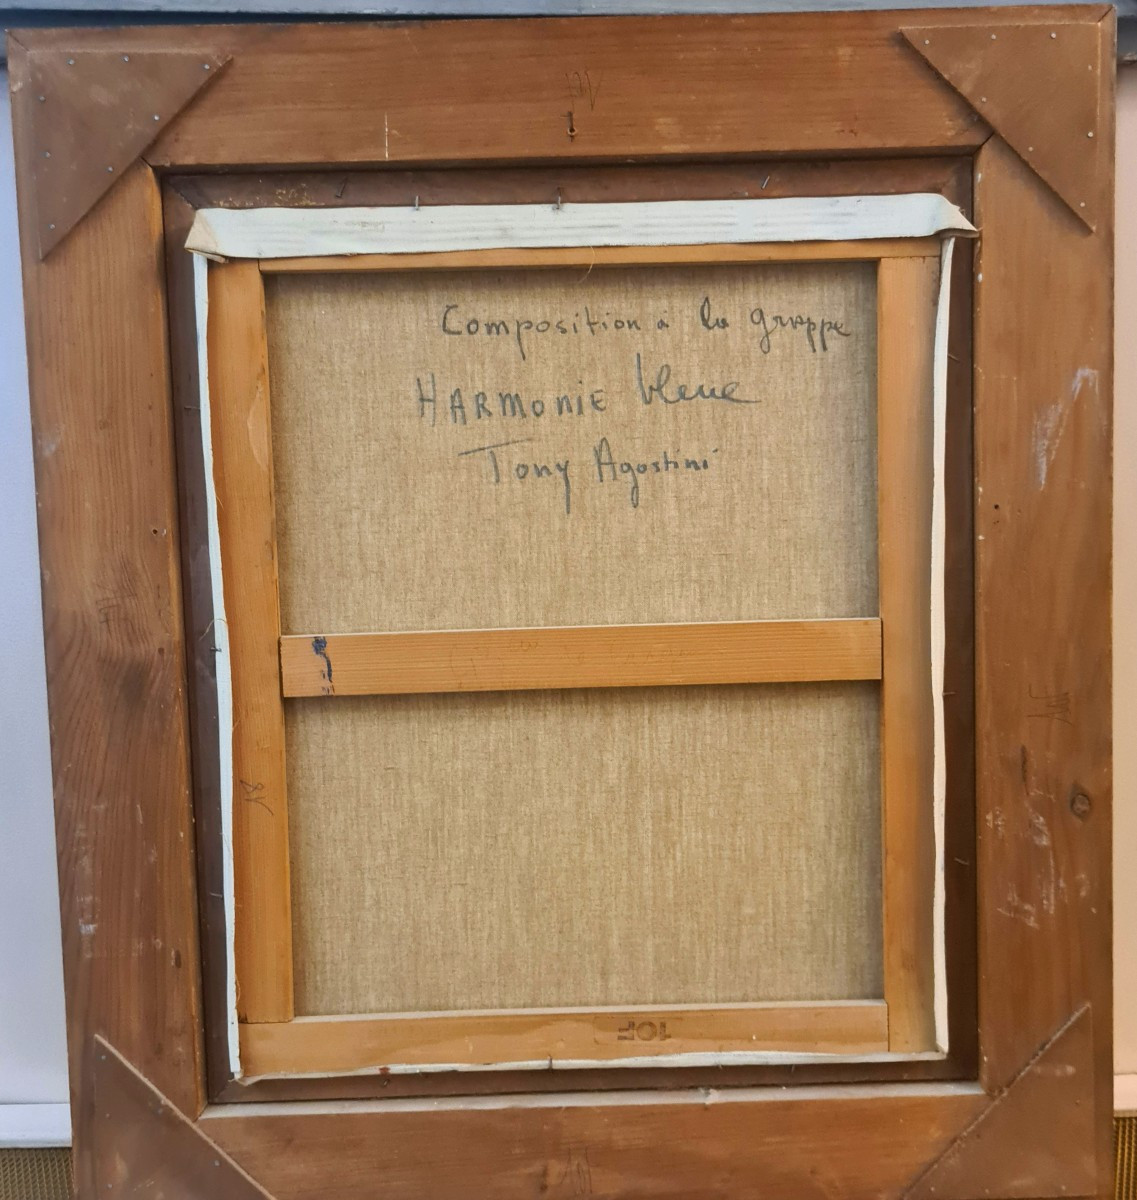 Composition à la grappe
HARMONIE bleue
Tony Agostini
10F